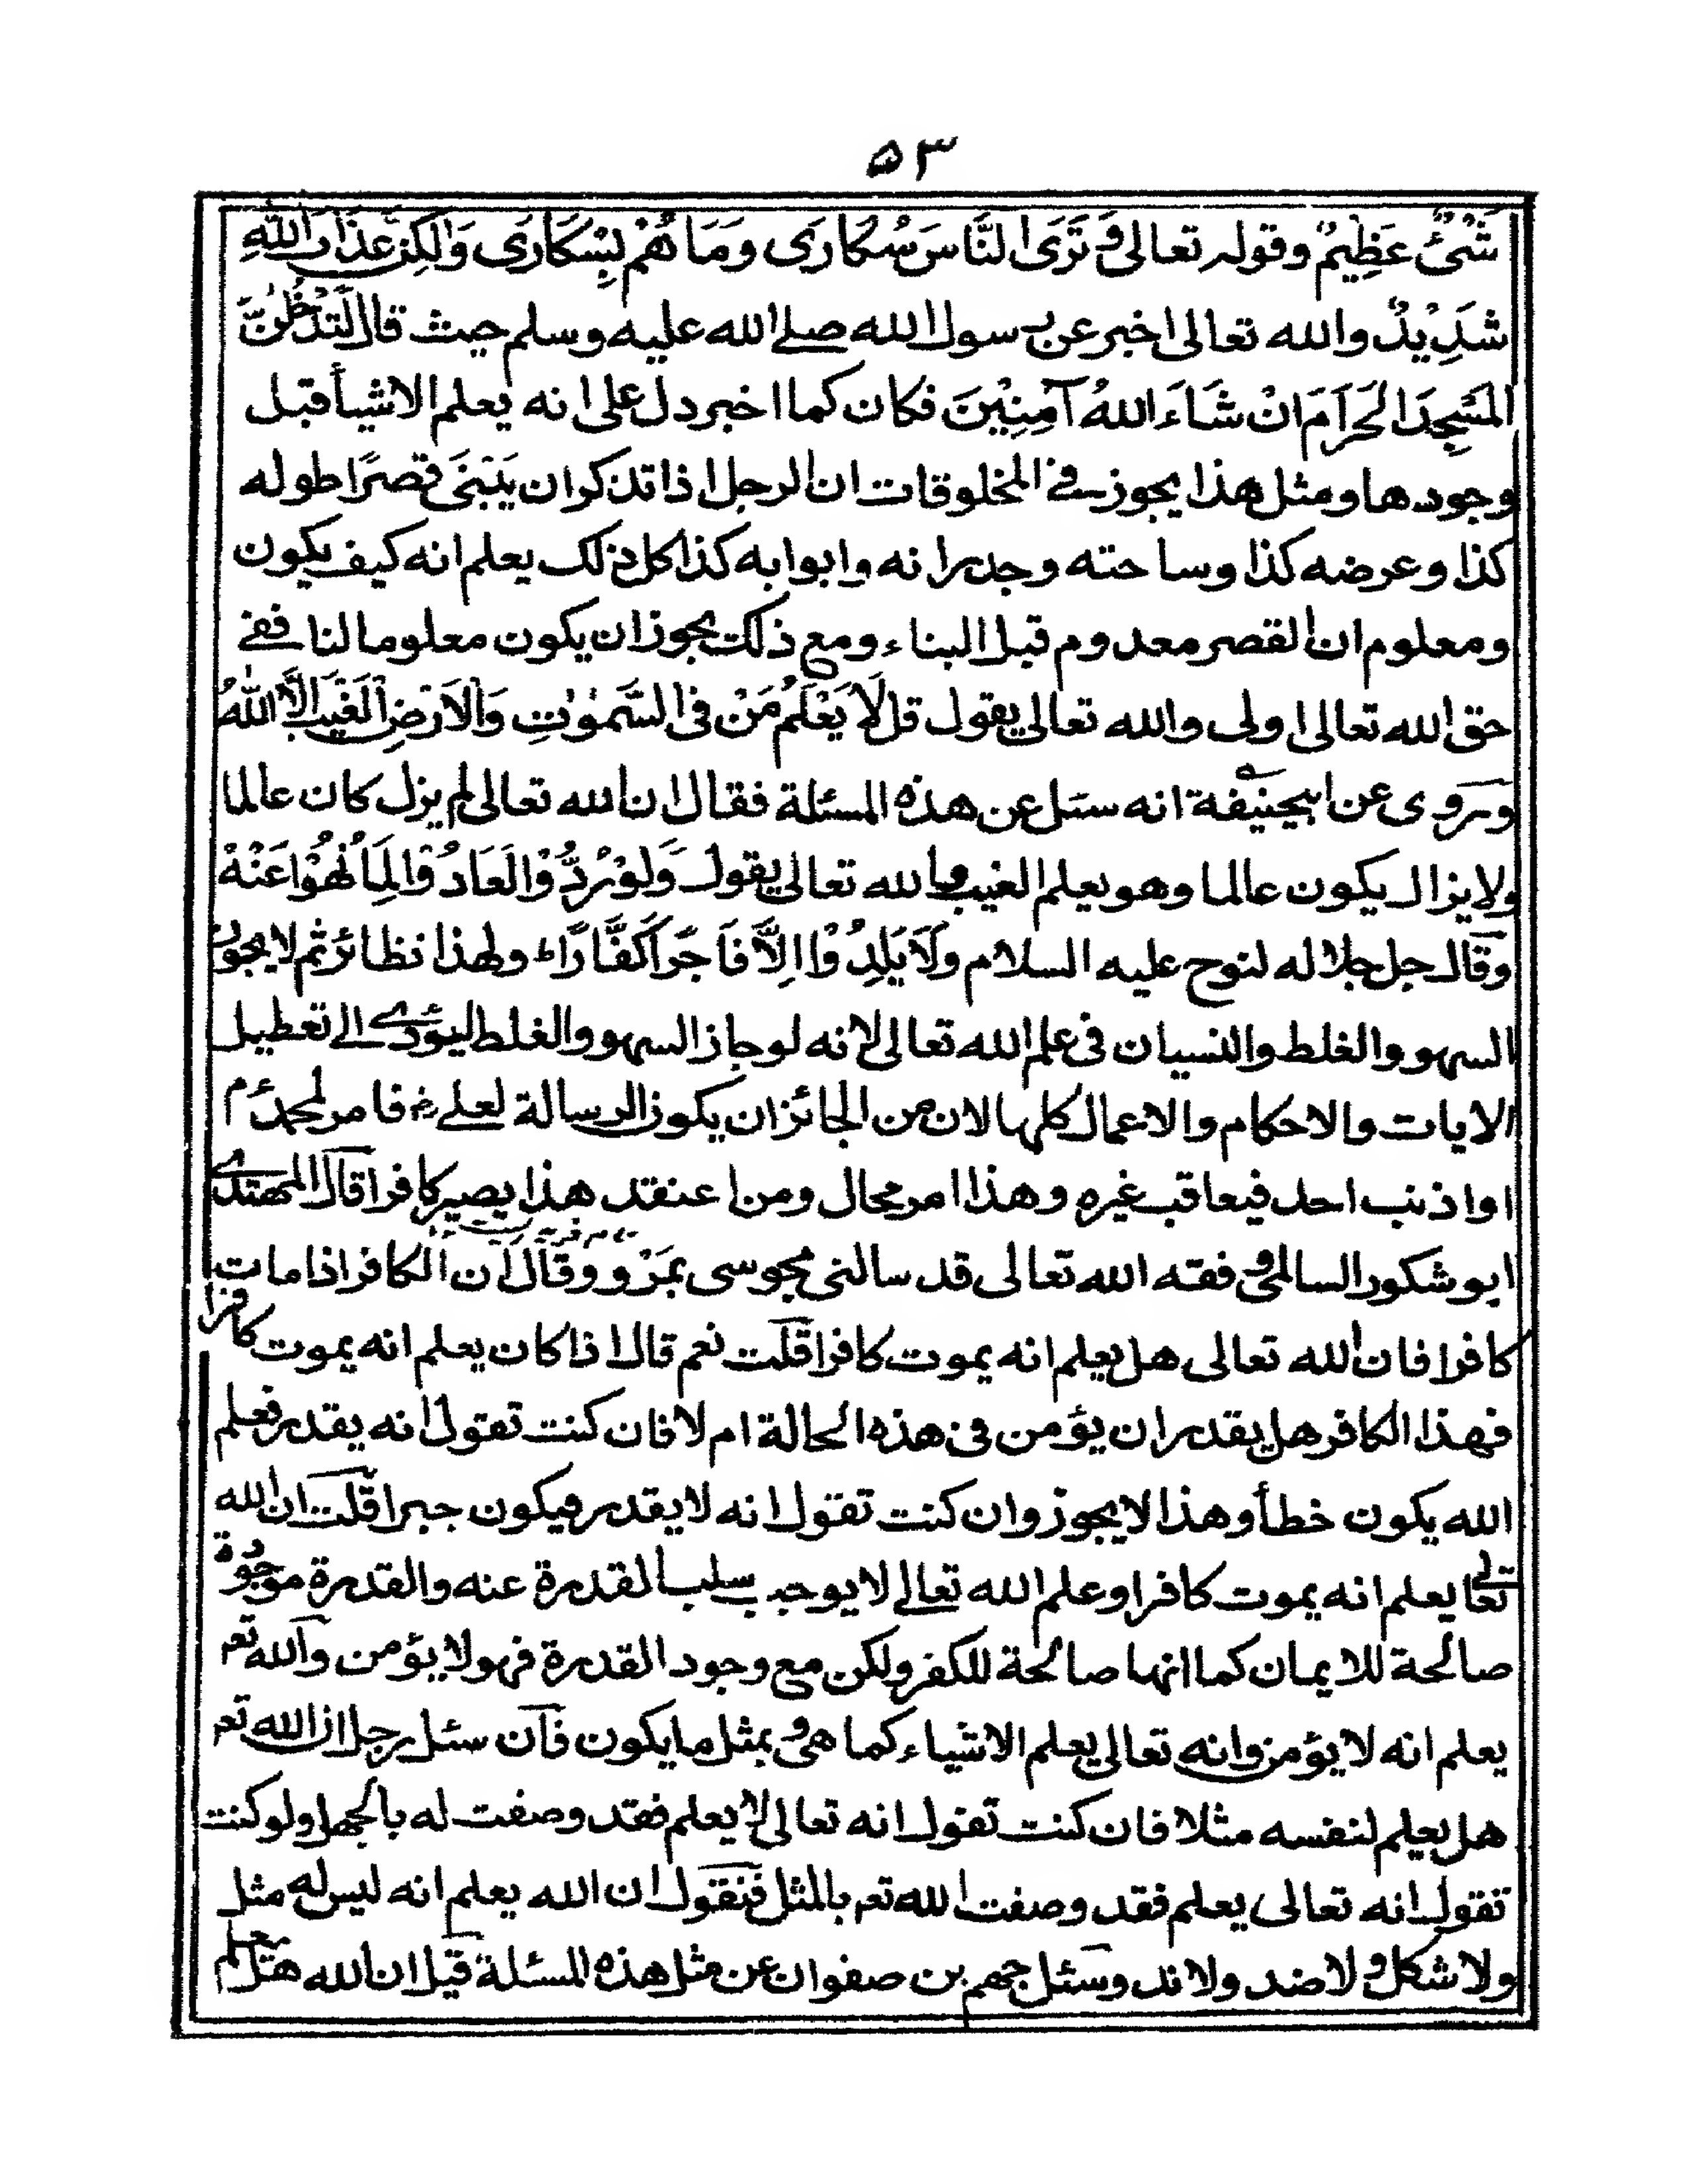 ٥٣
شَيْءٌ عَظِيمٌ وقوله تعالى وَتَرَى النَّاسَ سُكَارَى وَمَا هُمْ بِسُكَارَى وَلَكِنَّ عَذَابَ اللهِ
شَدِيْدٌ والله تعالى اخبر عن رسول الله صلے الله عليه وسلم حيث قال لَتَدْخُلُنَّ
المَسْجِدَ الحَرَامَ انْ شَاءَ اللهُ آمِنِيْنَ فكان كما اخبر دل على انه يعلم الاشيأ قبل
وجودها ومثل هذا يجوز فے المخلوقات ان الرجل اذا تذكر ان يَبْنَى قصرًا طوله
كذا وعرضه كذا وساحته وجدرانه وابوابه كذا كل ذلك يعلم انه كيف يكون
ومعلوم ان القصر معدوم قبل البناء ومع ذلك يجوز ان يكون معلوما لنا ففے
حق الله تعالى اولى والله تعالى يقول قل لَا يَعْلَمُ مَنْ فى السَّمٰوٰتِ وَالْاَرْضِ الْغَيْبَ الَّا اللهُ
وروى عن ابيحنيفة انه سئل عن هذه المسئلة فقال ان الله تعالى لم يزل كان عالما
ولا يزال يكون عالما وهو يعلم الغيب والله تعالى يقول وَلَوْ رُدُّوْا لَعَادُوْا لِمَا نُهُوْا عَنْهُ
وقال جل جلاله لنوح عليه السلام وَلَا يَلِدُوْا اِلَّا فَاجَرًا كَفَّارًا ولهذا نظائر ثم لا يجوز
السهو والغلط والنسيان فى علم الله تعالى لانه لو جاز السهو والغلط ليؤدے الے تعطيل
الايات والاحكام والاعمال كلها لان من الجائز ان يكون الرسالة لعلے فامر لمحمد م
او اذنب احد فيعاقب غيره وهذا امر محال ومن اعتقد هذا يصير كافرا قال المهتدے
ابو شكور السالمى وفقه الله تعالى قد سالنى مجوسى بمَرْو وقال ان الكافر اذا مات
كافرا فان الله تعالى هل يعلم انه يموت كافرا قلت نعم قال اذا كان يعلم انه يموت كافرا
فهذا الكافر هل يقدر ان يؤمن فى هذه الحالة ام لا فان كنت تقول انه يقدر فعلم
الله يكون خطأ وهذا لا يجوز وان كنت تقول انه لا يقدر فيكون جبرا قلت ان الله
تعالى يعلم انه يموت كافرا وعلم الله تعالى لا يوجب سلب القدرة عنه والقدرة موجودة
صالحة للايمان كما انها صالحة للكفر ولكن مع وجود القدرة فهو لا يؤمن والله تعم
يعلم انه لا يؤمن وانه تعالى يعلم الاشياء كما هى وبمثل ما يكون فان سئل رجل ان الله تعم
هل يعلم لنفسه مثلا فان كنت تقول انه تعالى لا يعلم فقد وصفت له بالجهل ولو كنت
تقول انه تعالى يعلم فقد وصفت الله تعم بالمثل فنقول ان الله يعلم انه ليس له مثل
ولا شكل ولا ضد ولا ند وسئل جهم بن صفوان عن مثل هذه المسئلة قيل ان الله هل يعلم